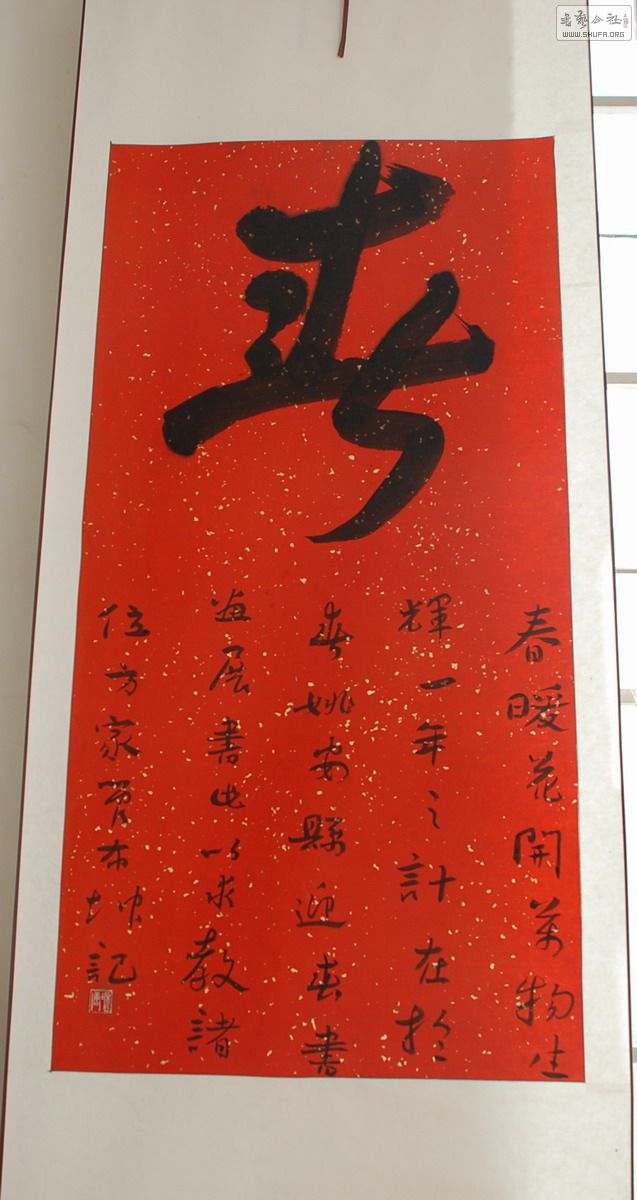 春
春暖花開萬物生
輝一年之計在於
春姚安縣迎春書
畫展書此以求教諸
位方家賈本坤記
书艺公社
WWW.SHUFA.ORG